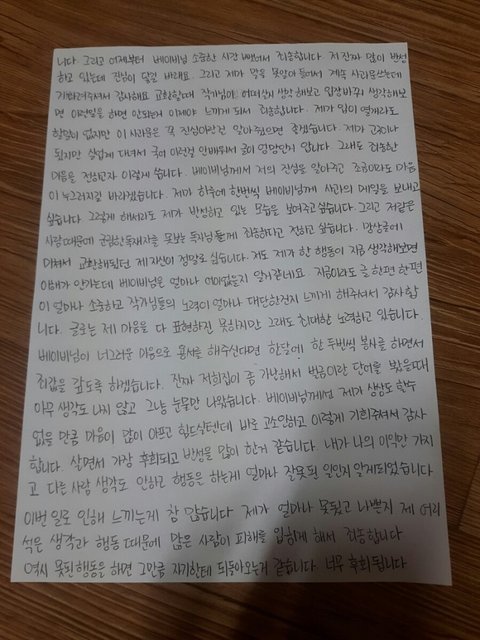 니다. 그리고 어제부터 베이비님 소중한 시간 뺏어서 죄송합니다. 저 진짜 많이 반성
하고 있는데 진심이 닿길 바래요. 그리고 제가 말을 못알아 들어서 계속 사과문쓰는데
기회려주셔서 감사해요 교환할때 작가님이 어떠실지 생각해보고 입장바꿔 생각해보
면 이런일을 하면 안되는거 이제야 느끼게 되서 죄송합니다. 제가 입이 열개라도
할말이 없지만 이 사과문은 꼭 진심이란건 알아줬으면 좋겠습니다. 제가 고3이나
됬지만 실업계 다녀서 글이 이런걸 안배워서 글이 엉망인지 압니다. 그래도 죄송한
마음은 전하고자 이렇게 씁니다. 베이비님께서 저의 진심을 알아주고 조금이라도 마음
이 누그러지길 바라겠습니다. 제가 하루에 한번씩 베이비님께 사과의 메일을 보내고
싶습니다. 그렇게 해서라도 제가 반성하고 있는 모습을 보여주고싶습니다. 그리고 저같은
사람때문에 군림한독재자를 못보는 독자님들께 죄송하다고 전하고 싶습니다.
미쳐서 교환해줬던 제 자신이 정말로 싫습니다. 저도 제가 한 행동이 지금 생각해보면
이해가 안가는데 베이비님은 얼마나 어이없을지 알거같네요. 지금이라도 글 한편 한편
이 얼마나 소중하고 작가님들의 노력이 얼마나 대단한건지 느끼게 해주셔서 감사합
니다. 글로는 제 마음을 다 표현하진 못하지만 그래도 최대한 노력하고 있습니다.
베이비님이 너그러운 마음으로 용서를 해주신다면 한달에 한 두번씩 봉사를 하면서
죄값을 갚도록 하겠습니다. 진짜 저희집이 좀 가난해서 벌금이란 단어를 봤을때
아무 생각도 나지 않고 그냥 눈물만 나왔습니다. 베이비님께선 제가 상상도 할수
없을 만큼 마음이 많이 아프고 힘드실텐데 바로 고소안하고 이렇게 기회주셔서 감사
합니다. 살면서 가장 후회되고 반성을 많이 한거 같습니다. 내가 나의 이익만 가지
고 다른 사람 생각도 안하고 행동을 하는게 얼마나 잘못된 일인지 알게되었습니다.
이번 일로 인해 느끼는게 참 많습니다. 제가 얼마나 못됬고 나쁜지 제 어리
석은 생각과 행동 때문에 많은 사람이 피해를 입히게 해서 죄송합니다
역시 못된 행동을 하면 그만큼 자기한테 되돌아오는거 같습니다. 너무 후회됩니다